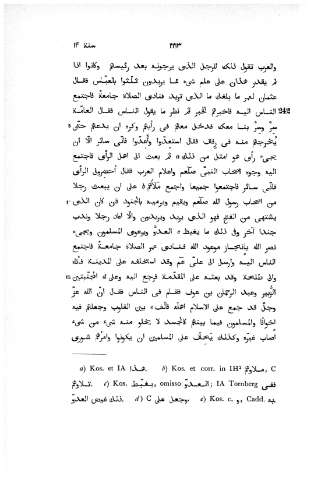 سنة ١۴ ٢٢١٣
والعرب تقول ذلك للرجل الذى يرجونه بعد رئيسهم وكانوا اذا
لم يقدر هذان على علم شىء مما يريدون ثلّثوا بالعبّاس فقال
عثمان لعمر ما بلغك ما الذى تريد فنادى الصلاة جامعة فاجتمع
الناس اليه فاخبرهم الخبر ثم نظر ما يقول الناس فقال العامّة
سِرْ وسِرْ بنا معك فدخل معهم فى رأيهم وكره ان يدعهم حتّى
يُخرجهم منه فى رفق فقال استعدّوا وأعدّوا فانّى سائر الّا ان
يجىء رأى هو امثل من ذلك ثم بعث الى اهل الرأى فاجتمع
اليه وجوه اصحاب النبىّ صلّعم واعلام العرب فقال أحضرونى الرأى
فانّى سائر فاجتمعوا جميعا واجمع ملأهم على ان يبعث رجلا
من اصحاب رسول الله صلّعم ويقيم ويرميه بالجنود فان كان الذى
يشتهى من الفتح فهو الذى يريد ويريدون والّا اعاد رجلا وندب
جندا آخر وفى ذلك ما يغيظ العدوّ ويرعوى المسلمون ويجىء
نصر الله بانجاز موعود الله فنادى عمر الصلاة جامعة فاجتمع
الناس اليه وارسل الى علىّ عم وقد استخلفه على المدينة فأتاه
والى طلحة وقد بعثه على المقدّمة فرجع اليه وعلى المجنّبتين
الزبير وعبد الرحمان بن عوف فقام فى الناس فقال انّ الله عزّ
وجلّ قد جمع على الاسلام اهله فألّف بين القلوب وجعلهم فيه
اخوانا والمسلمون فيما بينهم كالجسد لا يخلو منه شىء من شىء
اصاب غيره وكذلك يحقّ على المسلمين ان يكونوا وامرهم شورى
a) Kos. et IA هذا. b) Kos. et corr. in IH ملاوهم, C
ملاوم. c) Kos. بغيظ, omisso العدو; IA Tornberg ففى
ذلك غيض العدو. d) C وجعل على. e) Kos. c. و, Cadd. به